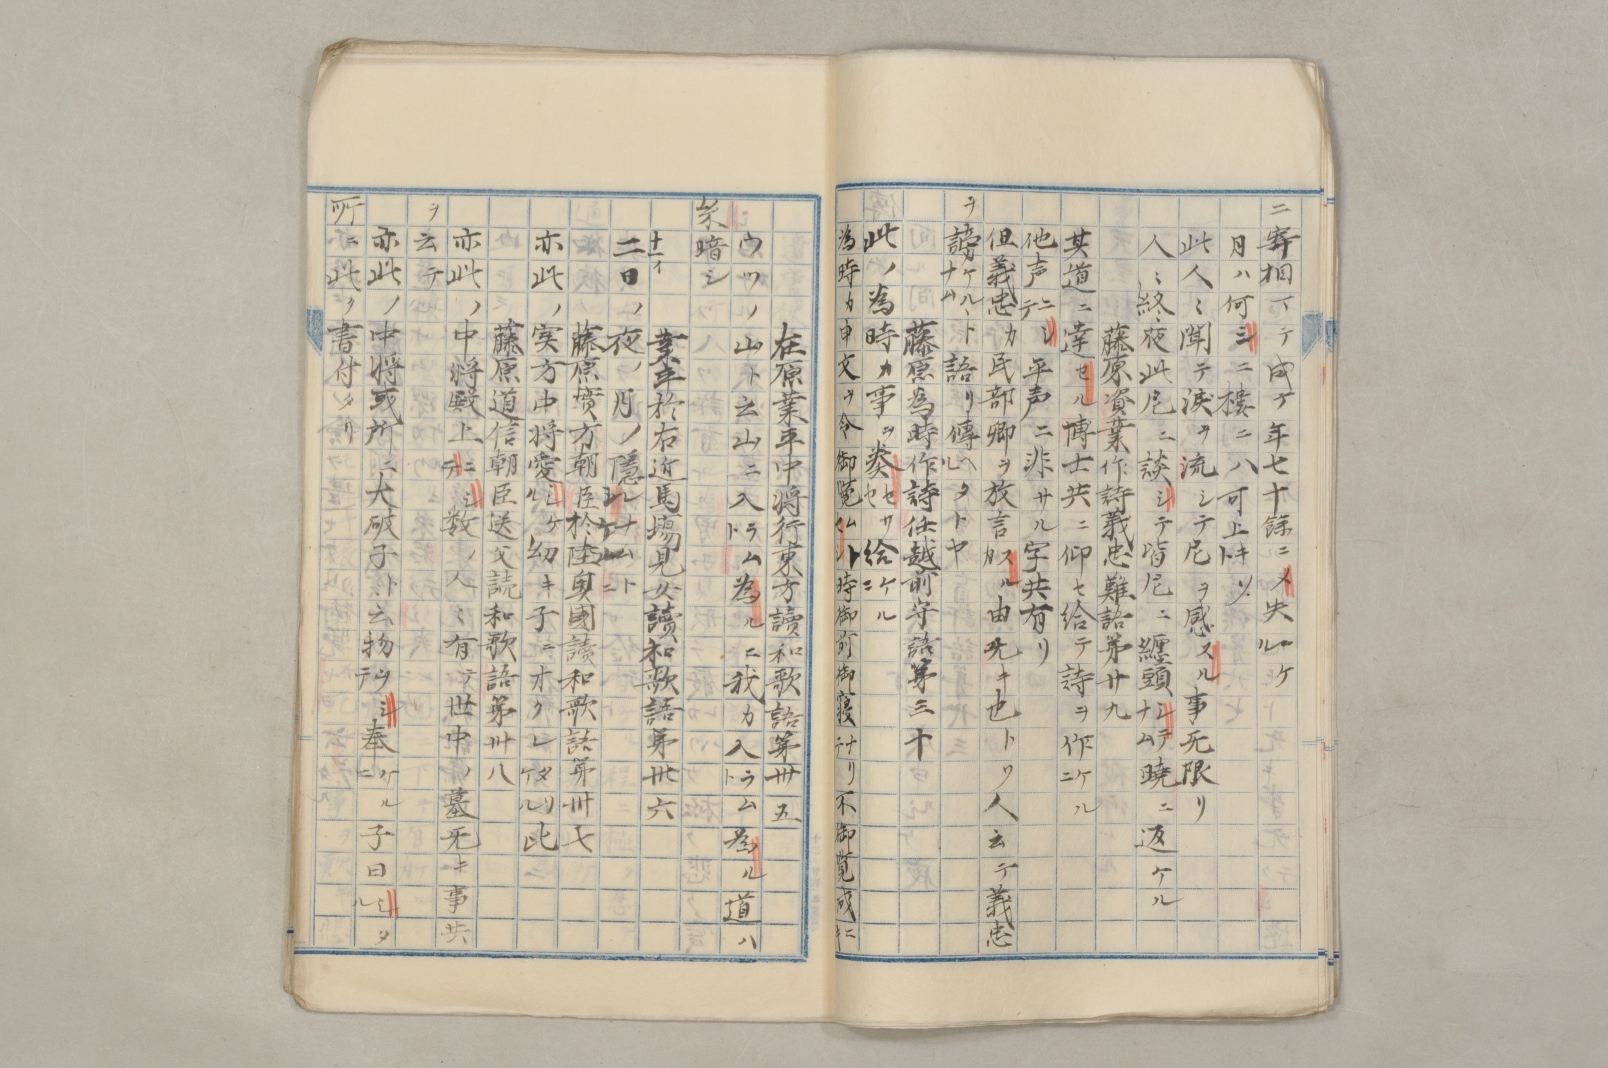 ニ寄相テ成ケ年七十餘ニメ失ルケ
月ハ何ニシニ樓ニハ可上キソ
此人ミ聞テ淚ヲ流シテ尼ヲ感スル事无限リ
人ミ終夜此尼ニ談シテ皆尼ニ纏頭シテナム曉ニ返ケル
藤原資業作詩義忠難語第廿九
其道ニ達セル博士共ニ仰セ給テ詩ヲ作ケルニ
他声ニシテ平声ニ非サル字共有リ
但義忠カ民部卿ヲ放言スル由无キ也トソ人云テ義忠
ヲ謗ケルナムト語リ傳ヘタルトヤ
藤原為時作詩任越前守語第三十
此ノ為時カ事ヲ奏セサセ給ケルニ
為時カ申文ヲ令御覧ムトシ時御前御寝ナリテ不御覧成ニキ
在原業平中将行東方讀和歌語第卅五
ウツノ山ト云山ニ入ラムト為ルニ我カ入ラムト為ル道ハ
糸暗シ
業平於右近馬場見女讀和歌語第卅六
十一イ
二日ノ夜ノ月ノ隠レナムトシケルニ
藤原實方朝臣於陸奥國讀和歌語第卅七
亦此ノ実方中将愛シケル幼キ子ニオクレタリケル此
藤原道信朝臣送父読和歌語第卅八
亦此ノ中将殿上ニシテ数ノ人ミ有テ世中ノ墓无キ事共
ヲ云テ
亦此ノ中将或所ニ大破子ト云物ヲシテ奉ケルニ子日シタル
所ニ此ク書付タリ